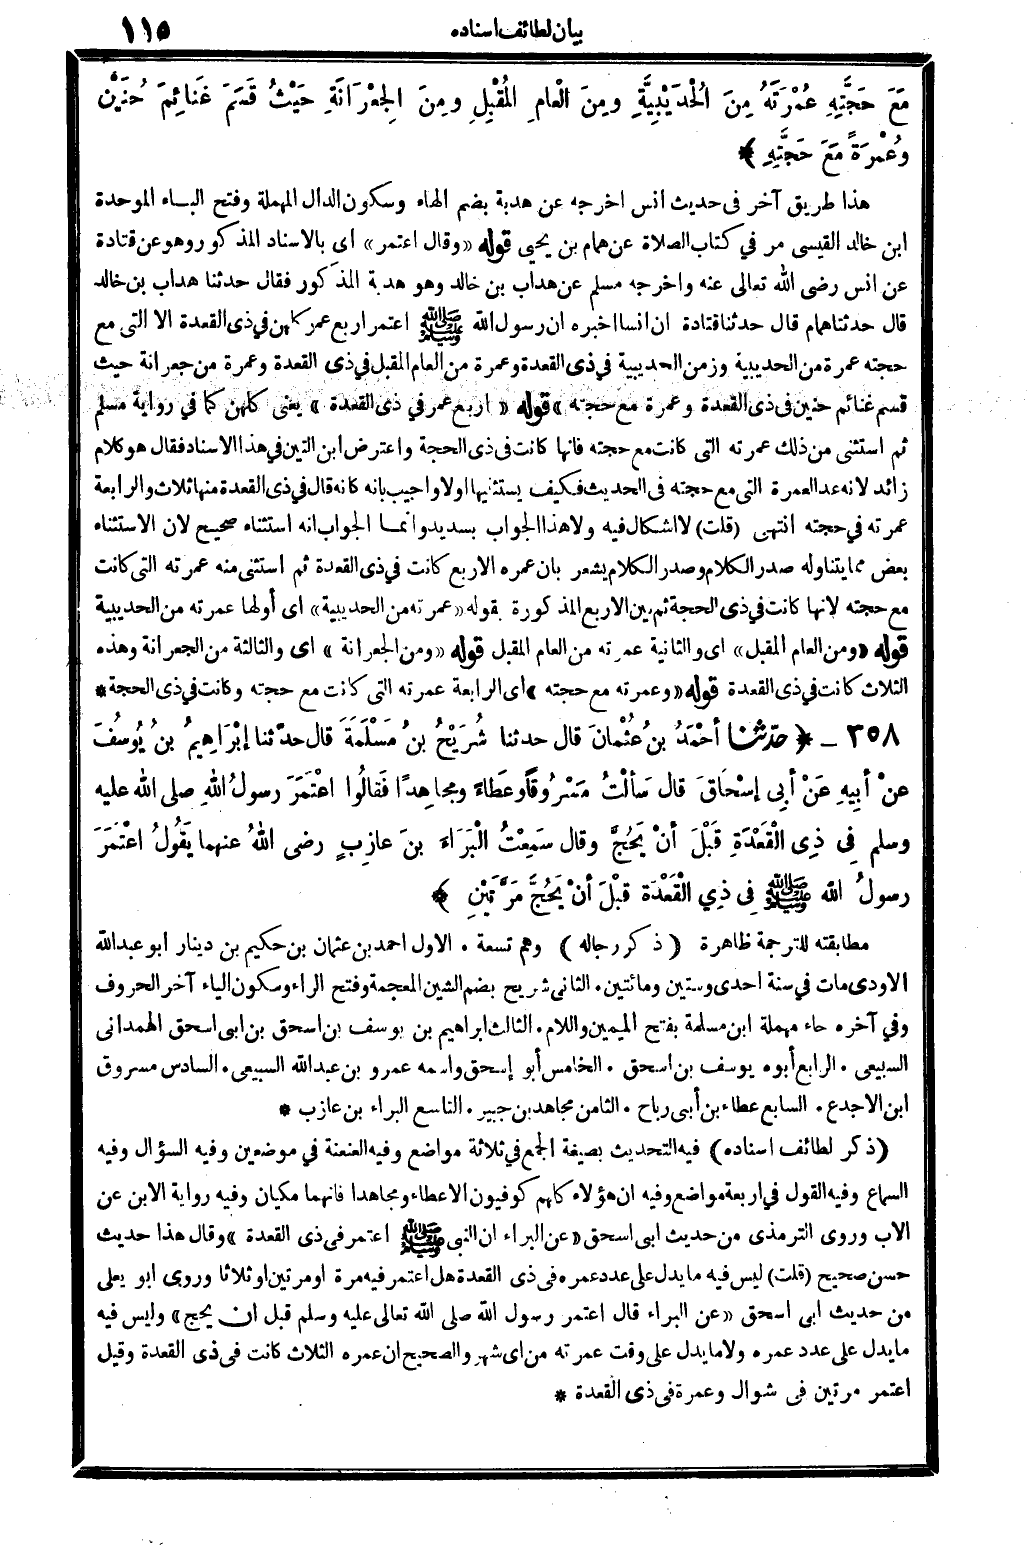 بيان لطائف اسناده
١١٥
مَعَ حَجَّتِهِ عُمْرَتَهُ مِنَ الْحُدَيْبِيَّةِ ومِنَ الْعامِ الْمُقْبِلِ ومِنَ الْجِعْرَانَةِ حَيْثُ قَسَمَ غَنَائِمَ حُنَيْنٍ
وعُمْرَةً مَعَ حَجَّتِهِ ﴾
هذا طريق آخر فى حديث انس اخرجه عن هدبة بضم الهاء وسكون الدال المهملة وفتح الباء الموحدة
ابن خالد القيسى مر في كتاب الصلاة عن همام بن يحيى قوله «وقال اعتمر» اى بالاسناد المذكور وهو عن قتادة
عن انس رضى الله تعالى عنه واخرجه مسلم عن هداب بن خالد وهو هدبة المذكور فقال حدثنا هداب بن خالد
قال حدثنا همام قال حدثنا قتادة ان انسا اخبره ان رسول الله ﷺ اعتمر اربع عمر كلهن في ذى القعدة الا التى مع
حجته عمرة من الحديبية وزمن الحديبية في ذى القعدة وعمرة من العام المقبل في ذى القعدة وعمرة من جعرانة حيث
قسم غنائم حنين فى ذى القعدة وعمرة مع حجته» قوله «اربع عمر في ذى القعدة» يعنى كلهن كما في رواية مسلم
ثم استثنى من ذلك عمرته التى كانت مع حجته فانها كانت في ذى الحجة واعترض ابن التين في هذا الاسناد فقال هو كلام
زائد لانه عد العمرة التى مع حجته فى الحديث فكيف يستثنيها اولا واجيب بانه كانه قال في ذى القعدة منها ثلاث والرابعة
عمرته في حجته انتهى (قلت) لا اشكال فيه ولا هذا الجواب بسديد وانما الجواب انه استثناء صحيح لان الاستثناء
بعض مما يتناوله صدر الكلام وصدر الكلام يشعر بان عمره الاربع كانت في ذى القعدة ثم استثنى منه عمرته التى كانت
مع حجته لانها كانت في ذى الحجة ثم بين الاربع المذكورة بقوله «عمرته من الحديبية» اى أولها عمرته من الحديبية
قوله «ومن العام المقبل» اى والثانية عمرته من العام المقبل قوله «ومن الجعرانة» اى والثالثة من الجعرانة وهذه
الثلاث كانت في ذى القعدة قوله «وعمرته مع حجته» اى الرابعة عمرته التى كانت مع حجته وكانت في ذى الحجة *
٣٥٨ - ﴿ حدّثنا أحْمَدُ بنُ عُثْمانَ قال حدثنا شُرَيْحُ بنُ مَسْلَمَةَ قال حدّثنا إبْرَاهِيمُ بنُ يُوسُفَ
عنْ أبِيهِ عَنْ أبِى إسْحَاقَ قال سَألْتُ مَسْرُوقًا وعَطاءً ومجاهِدًا فَقالُوا اعْتَمَرَ رسولُ اللهِ صلى الله عليه
وسلم فِى ذِى الْقَعْدَةِ قَبْلَ أنْ يَحُجَّ وقال سَمِعْتُ الْبَرَاءَ بنَ عازِبٍ رضى اللهُ عنهما يَقُولُ اعْتَمَرَ
رسولُ اللهِ ﷺ فِى ذِي الْقَعْدَةِ قَبْلَ أنْ يَحُجَّ مَرَّتَيْنِ ﴾
مطابقته للترجمة ظاهرة (ذكر رجاله) وهم تسعة . الاول احمد بن عثمان بن حكيم بن دينار ابو عبد الله
الاودى مات في سنة احدى وستين ومائتين . الثانى شريح بضم الشين المعجمة وفتح الراء وسكون الياء آخر الحروف
وفي آخره حاء مهملة ابن مسلمة بفتح الميمين واللام . الثالث ابراهيم بن يوسف بن اسحق بن ابى اسحق الهمدانى
السبيعى . الرابع أبوه يوسف بن اسحق . الخامس أبو إسحق واسمه عمرو بن عبد الله السبيعى . السادس مسروق
ابن الاجدع . السابع عطاء بن أبى رباح . الثامن مجاهد بن جبير . التاسع البراء بن عازب *
(ذكر لطائف اسناده) فيه التحديث بصيغة الجمع في ثلاثة مواضع وفيه العنعنة في موضعين وفيه السؤال وفيه
السماع وفيه القول في اربعة مواضع وفيه ان هؤلاء كلهم كوفيون الا عطاء ومجاهدا فانهما مكيان وفيه رواية الابن عن
الاب وروى الترمذى من حديث ابى اسحق «عن البراء ان النبى ﷺ اعتمر فى ذى القعدة» وقال هذا حديث
حسن صحيح (قلت) ليس فيه ما يدل على عدد عمره فى ذى القعدة هل اعتمر فيه مرة او مرتين او ثلاثا وروى ابو يعلى
من حديث ابى اسحق «عن البراء قال اعتمر رسول الله صلى الله تعالى عليه وسلم قبل ان يحج» وليس فيه
ما يدل على عدد عمره ولا ما يدل على وقت عمرته من اى شهر والصحيح ان عمره الثلاث كانت فى ذى القعدة وقيل
اعتمر مرتين فى شوال وعمرة فى ذى القعدة *